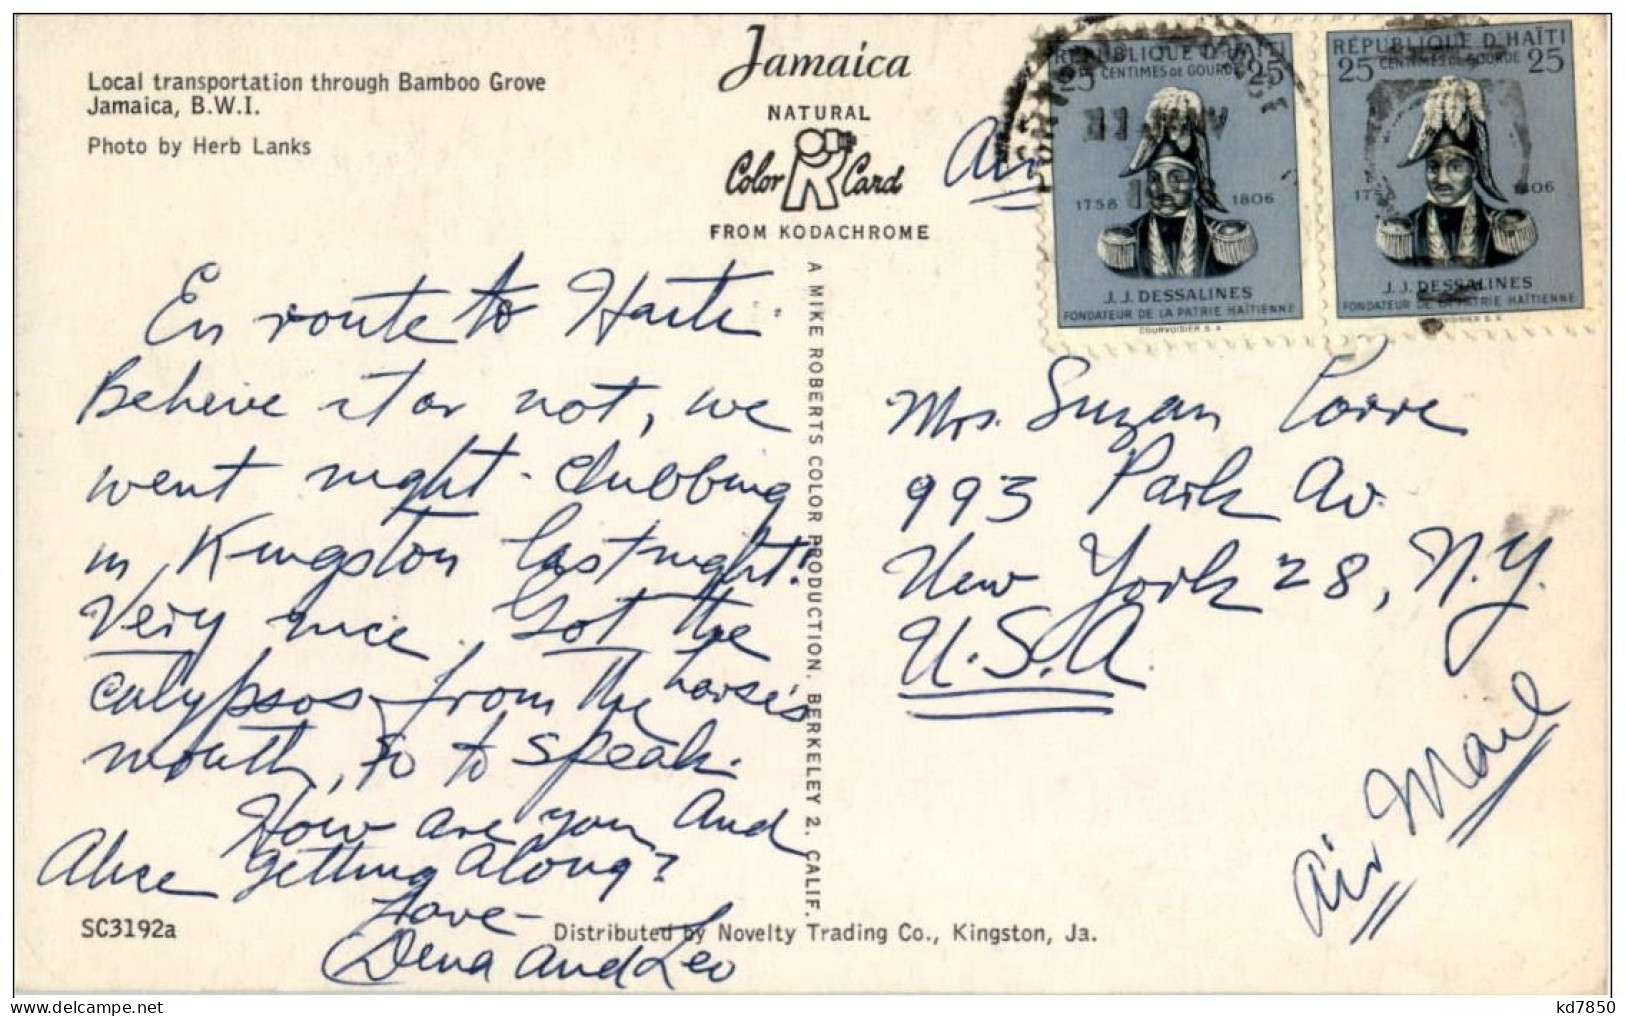 Local transportation through Bamboo Grove
Jamaica, B.W.I.
Photo by Herb Lanks
Jamaica
NATURAL
Color Card
FROM KODACHROME
Air
REPUBLIQUE D'HAÏTI
25 CENTIMES DE GOURDE 25
11
1758 1806
J. J. DESSALINES
FONDATEUR DE LA PATRIE HAÏTIENNE
COURVOISIER S.A.
REPUBLIQUE D'HAÏTI
25 CENTIMES DE GOURDE 25
1758 1806
J. J. DESSALINES
FONDATEUR DE LA PATRIE HAÏTIENNE
COURVOISIER S.A.
En route to Haiti
Believe it or not, we
went night-clubbing
in Kingston last night!
Very nice. Got the
calypsos from the horse's
mouth, so to speak.
How are you and
Alice getting along?
Love -
Dena and Leo
A MIKE ROBERTS COLOR PRODUCTION. BERKELEY 2. CALIF.
Mrs. Suzan
993 Park Av.
New York 28, N.Y.
U.S.A.
Air Mail
SC3192a
Distributed by Novelty Trading Co., Kingston, Ja.
delcampe.net
kd7850